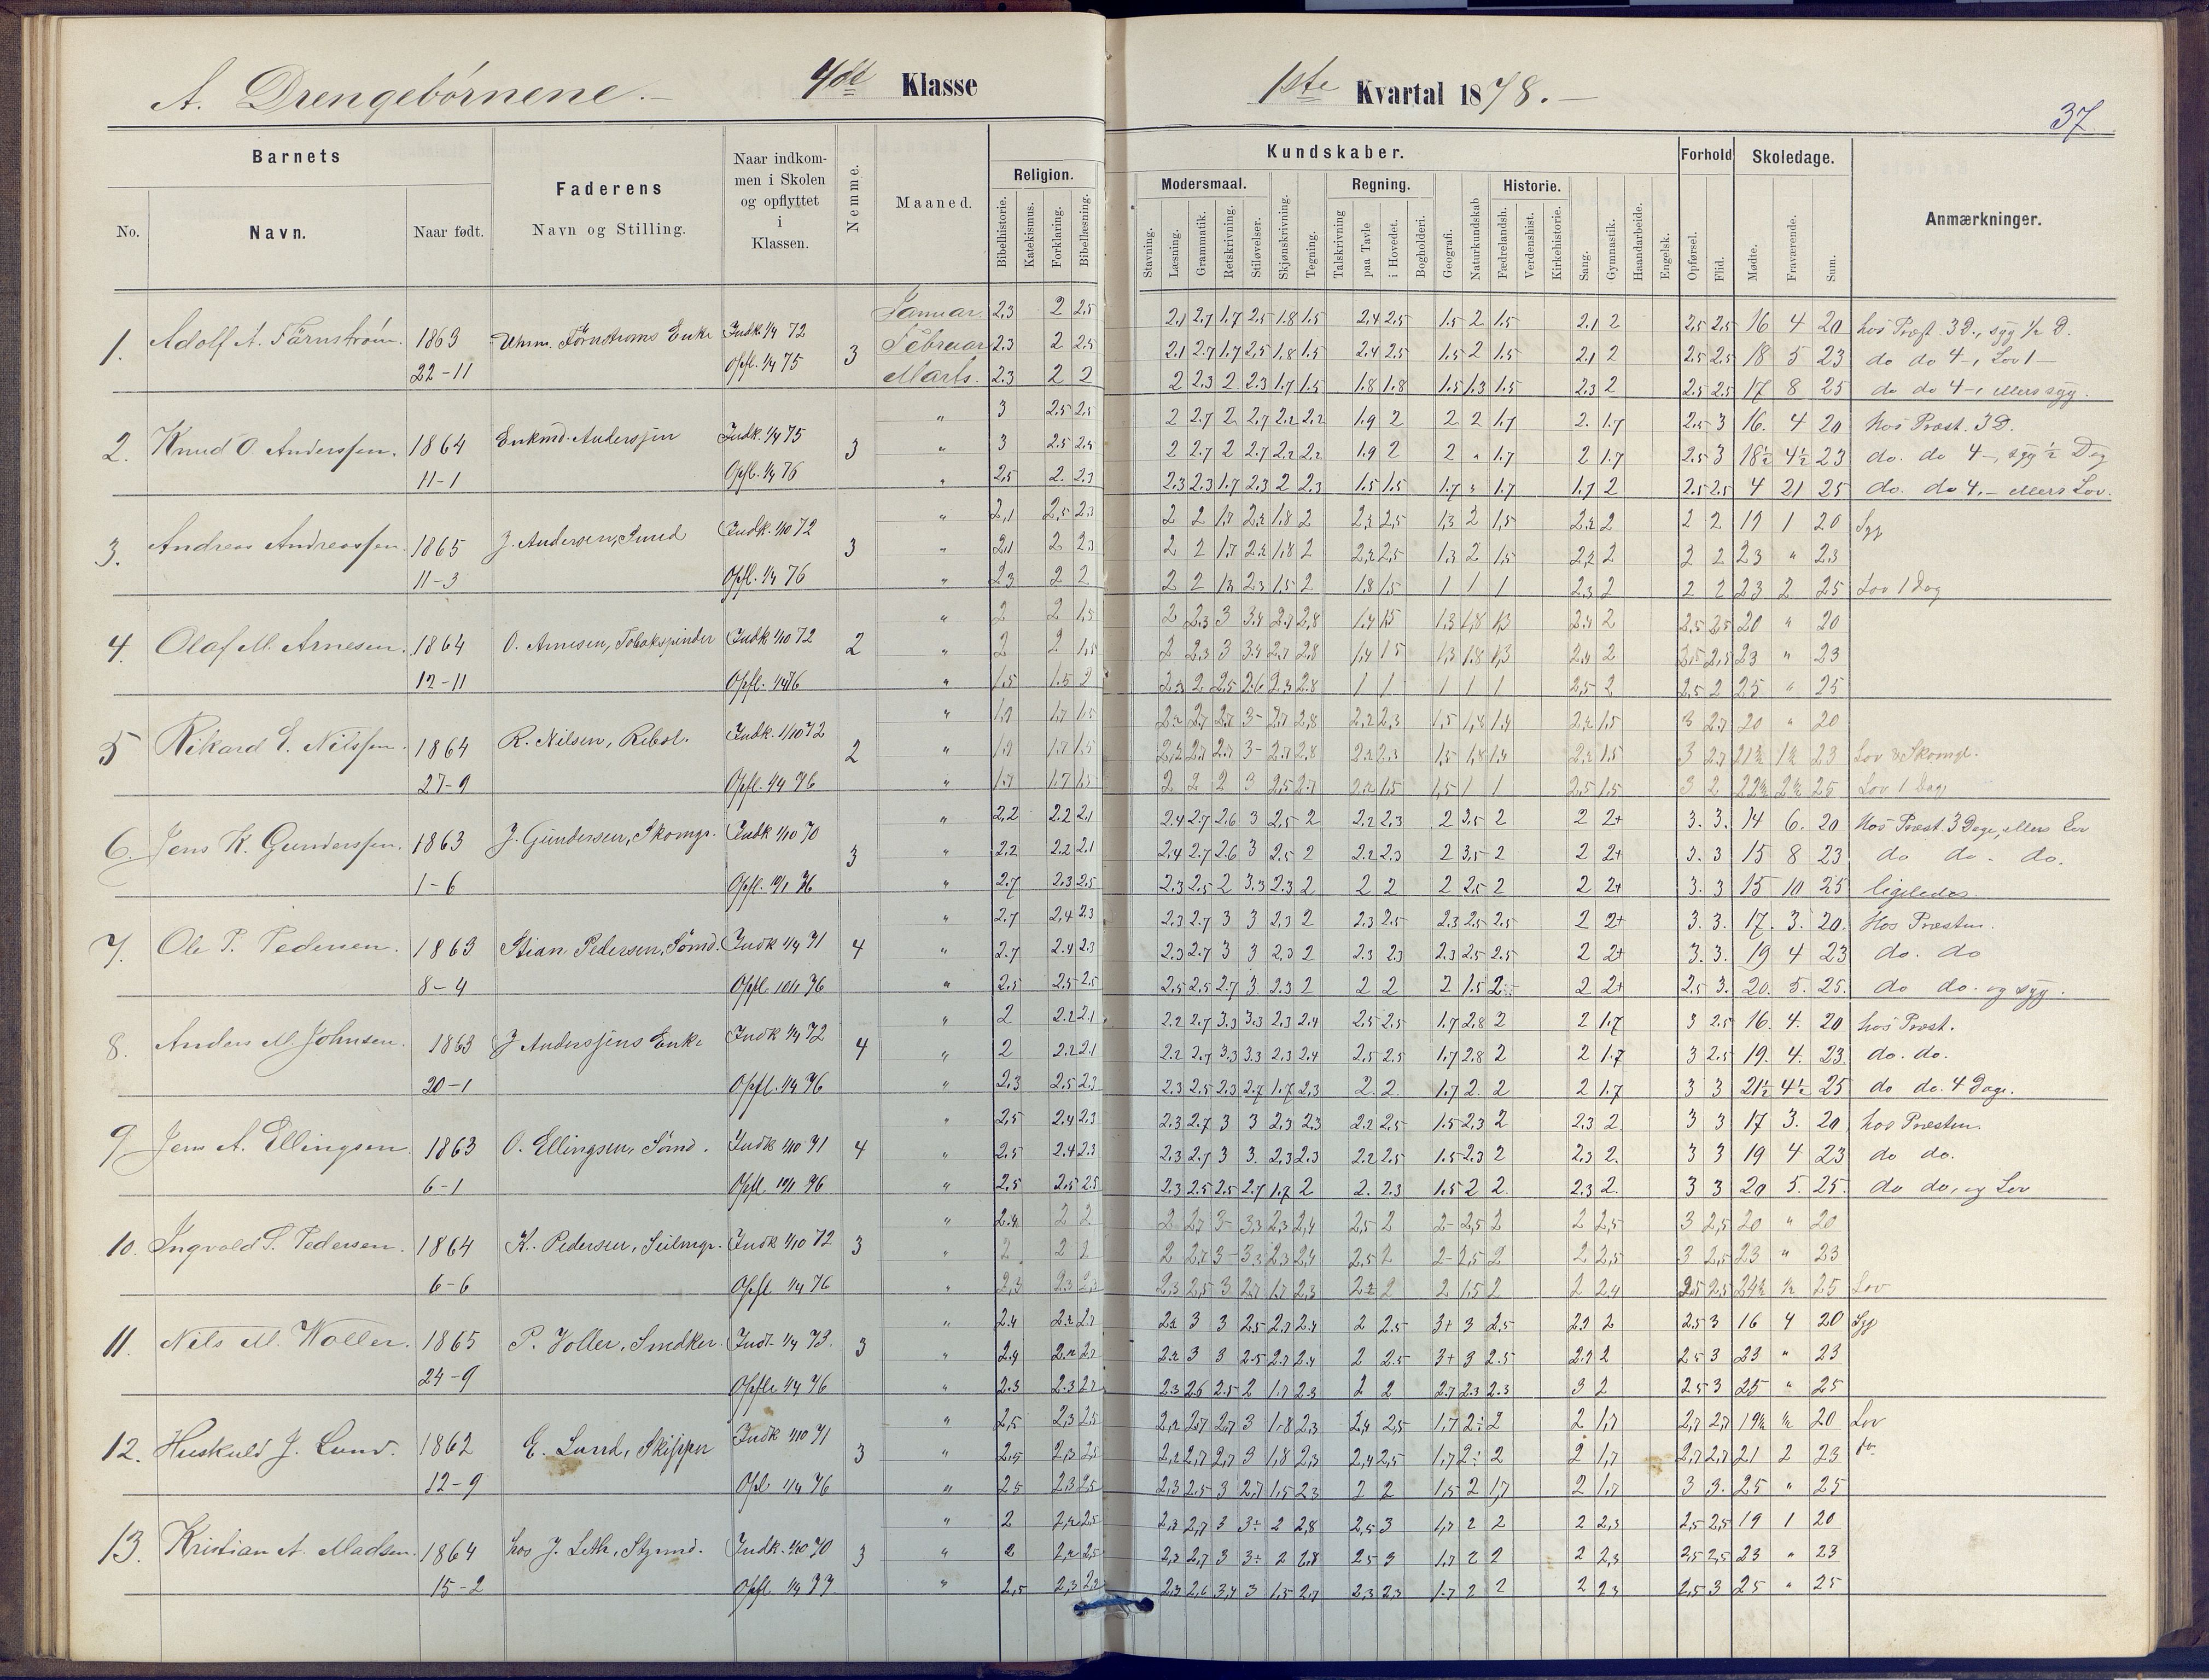 A. Drengebørnene.
4de Klasse
1ste Kvartal 1878.
37
Barnets
Faderens
Naar indkom-
men i Skolen
og opflyttet
i
Klassen.
Nemme.
Maaned.
Religion.
Kundskaber.
Modersmaal.
Regning.
Historie.
Forhold
Skoledage.
Anmærkninger.
No.
Navn.
Naar født.
Navn og Stilling.
Bibelhistorie.
Katekismus.
Forklaring.
Bibellæsning.
Stavning.
Læsning.
Grammatik.
Retskrivning.
Stiløvelser.
Skjønskrivning.
Tegning.
Talskrivning
paa Tavle
i Hovedet.
Bogholderi.
Geografi.
Naturkundskab
Fædrelandsh.
Verdenshist.
Kirkehistorie.
Sang.
Gymnastik.
Haandarbeide.
Engelsk.
Opførsel.
Flid.
Mødte.
Fraværende.
Sum.
Januar 2.3 2 2.5 2.1 2.7 1.7 2.5 1.8 1.5 2.4 2.5 1.5 2 1.5 2.1 2 2.5 2.5 16 4 20 hos Præst. 3 D., syg ½ D.
1. Adolf A. Färnström. 1863 Färnströms Enke Indk. 1/4 72 3 Februar 2.3 2 2.5 2.1 2.7 1.7 2.5 1.8 1.5 2.4 2.5 1.5 2 1.5 2.1 2 2.5 2.5 18 5 23 do do 4 -, Lov 1 -
22-11 Opfl. 1/4 75 Marts. 2.3 2 2 2 2.3 2 2.3 1.7 1.5 1.8 1.8 1.5 1.3 1.5 2.3 2 2.5 2.5 17 8 25 do do 4 -, ellers syg.
" 3 2.5 2.5 2 2.7 2 2.7 2.2 2.2 1.9 2 2 2 1.7 2. 1.7 2.5 3 16. 4 20 hos Præst. 3 D.
2. Knud O. Anderssen. 1864 Enkmd. Anderssen Indk. 1/4 75 3 " 3 2.5 2.5 2 2.7 2 2.7 2.2 2.2 1.9 2 2 " 1.7 2 1.7 2.5 3 18½ 4½ 23 do. do 4 -, syg ½ Dag
11-1 Opfl. 1/4 76 " 2.5 2. 2.3 2.3 2.3 1.7 2.3 2 2.3 1.5 1.5 1.7 " 1.7 1.7 2 2.5 2.5 4 21 25 do. do 4. - ellers Lov.
" 2,1 2,5 2.3 2 2 1.7 2.2 1.8 2 2,2 2,5 1,3 2 1,5 2,2 2 2 2 19 1 20 Syg
3. Andreas Andreassen. 1865 J. Andersen, Smed Indk. 1/10 72 3 " 2,1 2 2.3 2 2 1.7 2.2 1,8 2 2,2 2,5 1.3 2 1,5 2,2 2 2 2 23 " 23
11-3 Opfl. 1/4 76 " 2.3 2 2 2 2 1.7 2.3 1.5 2 1.8 1.5 1 1 1 2.3 2 2 2 23 2 25 Lov 1 Dag
" 2 2 1.5 2 2.3 3 3.4 2.7 2.8 1.4 1.5 1.3 1,8 1,3 2.4 2 2.5 2.5 20 " 20
4. Olaf M. Arnesen. 1864 O. Arnesen, Tobakspinder Indk 1/10 72 2 " 2 2 1.5 2 2.3 3 3.4 2.7 2.8 1,4 1 5 1,3 1.8 1,3 2.4 2 2,5 2,5 23 " 23
12-11 Opfl. 1/4 76 " 1.5 1.5 2 2.3 2 2.5 2.6 2.3 2.8 1 1 1 1 1 2,5 2 2.5 2 25 " 25
" 1.7 1.7 1.5 2.2 2.7 2.7 3- 2.7 2,8 2.2 2,3 1,5 1,8 1.4 2.2 1.5 3 2.7 20 " 20
5 Rikard E. Nilssen. 1864 R. Nilsen, Rebsl. Indk. 1/10 72 2 " 1.7 1.7 1.5 2,2 2.7 2.7 3- 2.7 2,8 2.2 2.3 1,5 1,8 1.4 2.2 1.5 3 2.7 21½ 1½ 23 Lov & Skomgl.
27-9 Opfl. 1/4 76 " 1.7 1.7 1.5 2 2 2 3 2,5 2.7 2.2 1.5 1,5 1 1 2,5 1.5 3 2 22½ 2½ 25 Lov 1 Dag
" 2,2 2.2 2,1 2.4 2.7 2.6 3 2.5 2 2.2 2.3 2 3.5 2 2 2+ 3. 3. 14 6. 20 hos Præst. 3 Dage, ellers Lov
6. Jens K. Gunderssen. 1863 J. Gundersen, Skomgr. Indk 1/10 70 3 " 2.2 2.2 2.1 2,4 2.7 2.6 3 2.5 2 2.2 2.3 2 3,5 2 2 2+ 3. 3 15 8 23 do do. do.
1-6 Opfl. 10/1 76 " 2.7 2.3 2.5 2.3 2.5 2 3.3 2.3 2 2 2 2 2.5 2 2 2+ 3. 3 15 10 25 ligeledes.
" 2.7 2,4 2.3 2.3 2.7 3 3 2.3 2 2.3 2.5 2.3 2.5 2.5 2 2+ 3. 3. 17. 3. 20. Hos Præsten.
7. Ole P. Pedersen. 1863 Stian Pedersen, Sømd. Indk 1/4 71 4 " 2.7 2.4 2.3 2.3 2.7 3 3 2.3 2 2.3 2.3 2.3 2.5 2.5 2 2+ 3. 3. 19 4 23 do. do
8-4 Opfl. 10/1 76 " 2.5 2.5 2.5 2.5 2.5 2.7 3 2.3 2 2 2 2 1.5 2÷ 2 2+ 2.5 3. 20. 5. 25. do do. og syg.
" 2 2.2 2.1 2.2 2.7 3.3 3.3 2.3 2.4 2.5 2.5 1.7 2.8 2 2 1.7 3 2.5 16. 4. 20 hos Præst.
8. Anders M. Johnsen. 1863 J Anderssens Enke Indk 1/4 72 4 " 2 2.2 2.1 2.2 2.7 3.3 3.3 2.3 2.4 2.5 2.5 1.7 2.8 2 2 1.7 3 2.5 19. 4. 23. do. do.
20-1 Opfl. 1/4 76 " 2.3 2.5 2.3 2.3 2.5 2.3 2.7 1.7 2,3 2. 2. 1.7 2. 2 2 1.7 3 3 21½ 4½ 25 do do. 4 Dage.
" 2.5 2.4 2.3 2.3 2.7 3 3 2.3 2.3 2.2 2.5 1.5 2.3 2 2.3 2 3 3 17 3. 20 hos Præsten.
9 Jens A. Ellingsen 1863 O. Ellingsen, Sømd. Indk 1/10 71 4 " 2.5 2.4 2.3 2.3 2.7 3 3. 2.3 2.3 2.2 2.5 1.5 2.3 2 2.3 2. 3 3 19 4 23 do do.
6-1 Opfl. 10/1 76 " 2.5 2.5 2.5 2.3 2.5 2.5 2.7 1.7 2 2. 2.3 1.5 2 2. 2.3 2. 3 3 20 5. 25. do do, og Lov
" 2.4 2 2 2 2.7 3- 3.3 2.3 2,4 2,5 2 2- 2,5 2 2 2,5 3 2,5 20 " 20
10. Ingvald S. Pedersen. 1864 K. Pedersen, Seilmgr. Indk 1/10 72 3 " 2 2 2 2 2.7 3- 3.3 2.3 2.4 2,5 2 2- 2,5 2 2 2,5 3 2,5 23 " 23
6-6 Opfl 1/4 76 " 2,3 2.3 2,3 2,3 2,5 3 2.7 1.7 2,3 2.2 2 2 1.5 2 2 2.4 2,5 2,5 24½ ½ 25 Lov
" 2.4 2.2 2.7 2.2 3 3 2.5 2.7 2.4 2 2.5 3+ 3 2.5 2.7 2 2.5 3 16 4 20 Syg
11. Nils M. Woller. 1865 P. Voller, Snedker. Indk 1/4 73. 3 " 2.4 2.2 2.7 2.2 3 3 2.5 2.7 2.4 2 2.5 3+ 3 2.5 2.7 2 2.5 3 23 " 23
24-9 Opfl. 1/4 76 " 2.3 2.3 2.7 2.3 2.6 2.5 2 1.7 2.3 2 2 2.7 2.3 2.3 3 2 2.5 3 25 " 25
" 2,5 2,3 2.5 2,2 2,7 2,7 3 1.8 2,3 2,4 2,5 1,7 2÷ 2 2 1,7 2,7 2,7 19½ ½ 20 Lov
12. Huskuld J. Lund. 1862 E. Lund, Skipper Indk 1/10 71 3 " 2,5 2,3 2,5 2,2 2,7 2,7 3 1,8 2,3 2,4 2,5 1,7 2÷ 2 2 1,7 2,7 2,7 21 2 23 do
12-9 Opfl 1/4 76 " 2.5 2.3 2.5 2,3 2.5 3 2.7 1.5 2.3 2 2 1.5 2 1,7 2 1.7 3 3. 25 " 25
" 2 2,2 2.5 2,3 2,7 3 3÷ 2 2,8 2,5 3 1,7 2 2 2 2,3 2,5 2,5 19 1 20
13. Kristian A. Madsen. 1864 hos J. Leth, Stymd. Indk. 1/10 70 3 " 2 2,2 2,5 2,3 2,7 3 3÷ 2 2,8 2.5 3 1.7 2 2 2 2,3 2,5 2,5 23 " 23
15-2 Opfl. 1/4 77 " 2,5 2,3 2,2 3 1,5 2,7 2.3 2,3 1.7 2 2 2 2.3 2,5 3 25 " 25